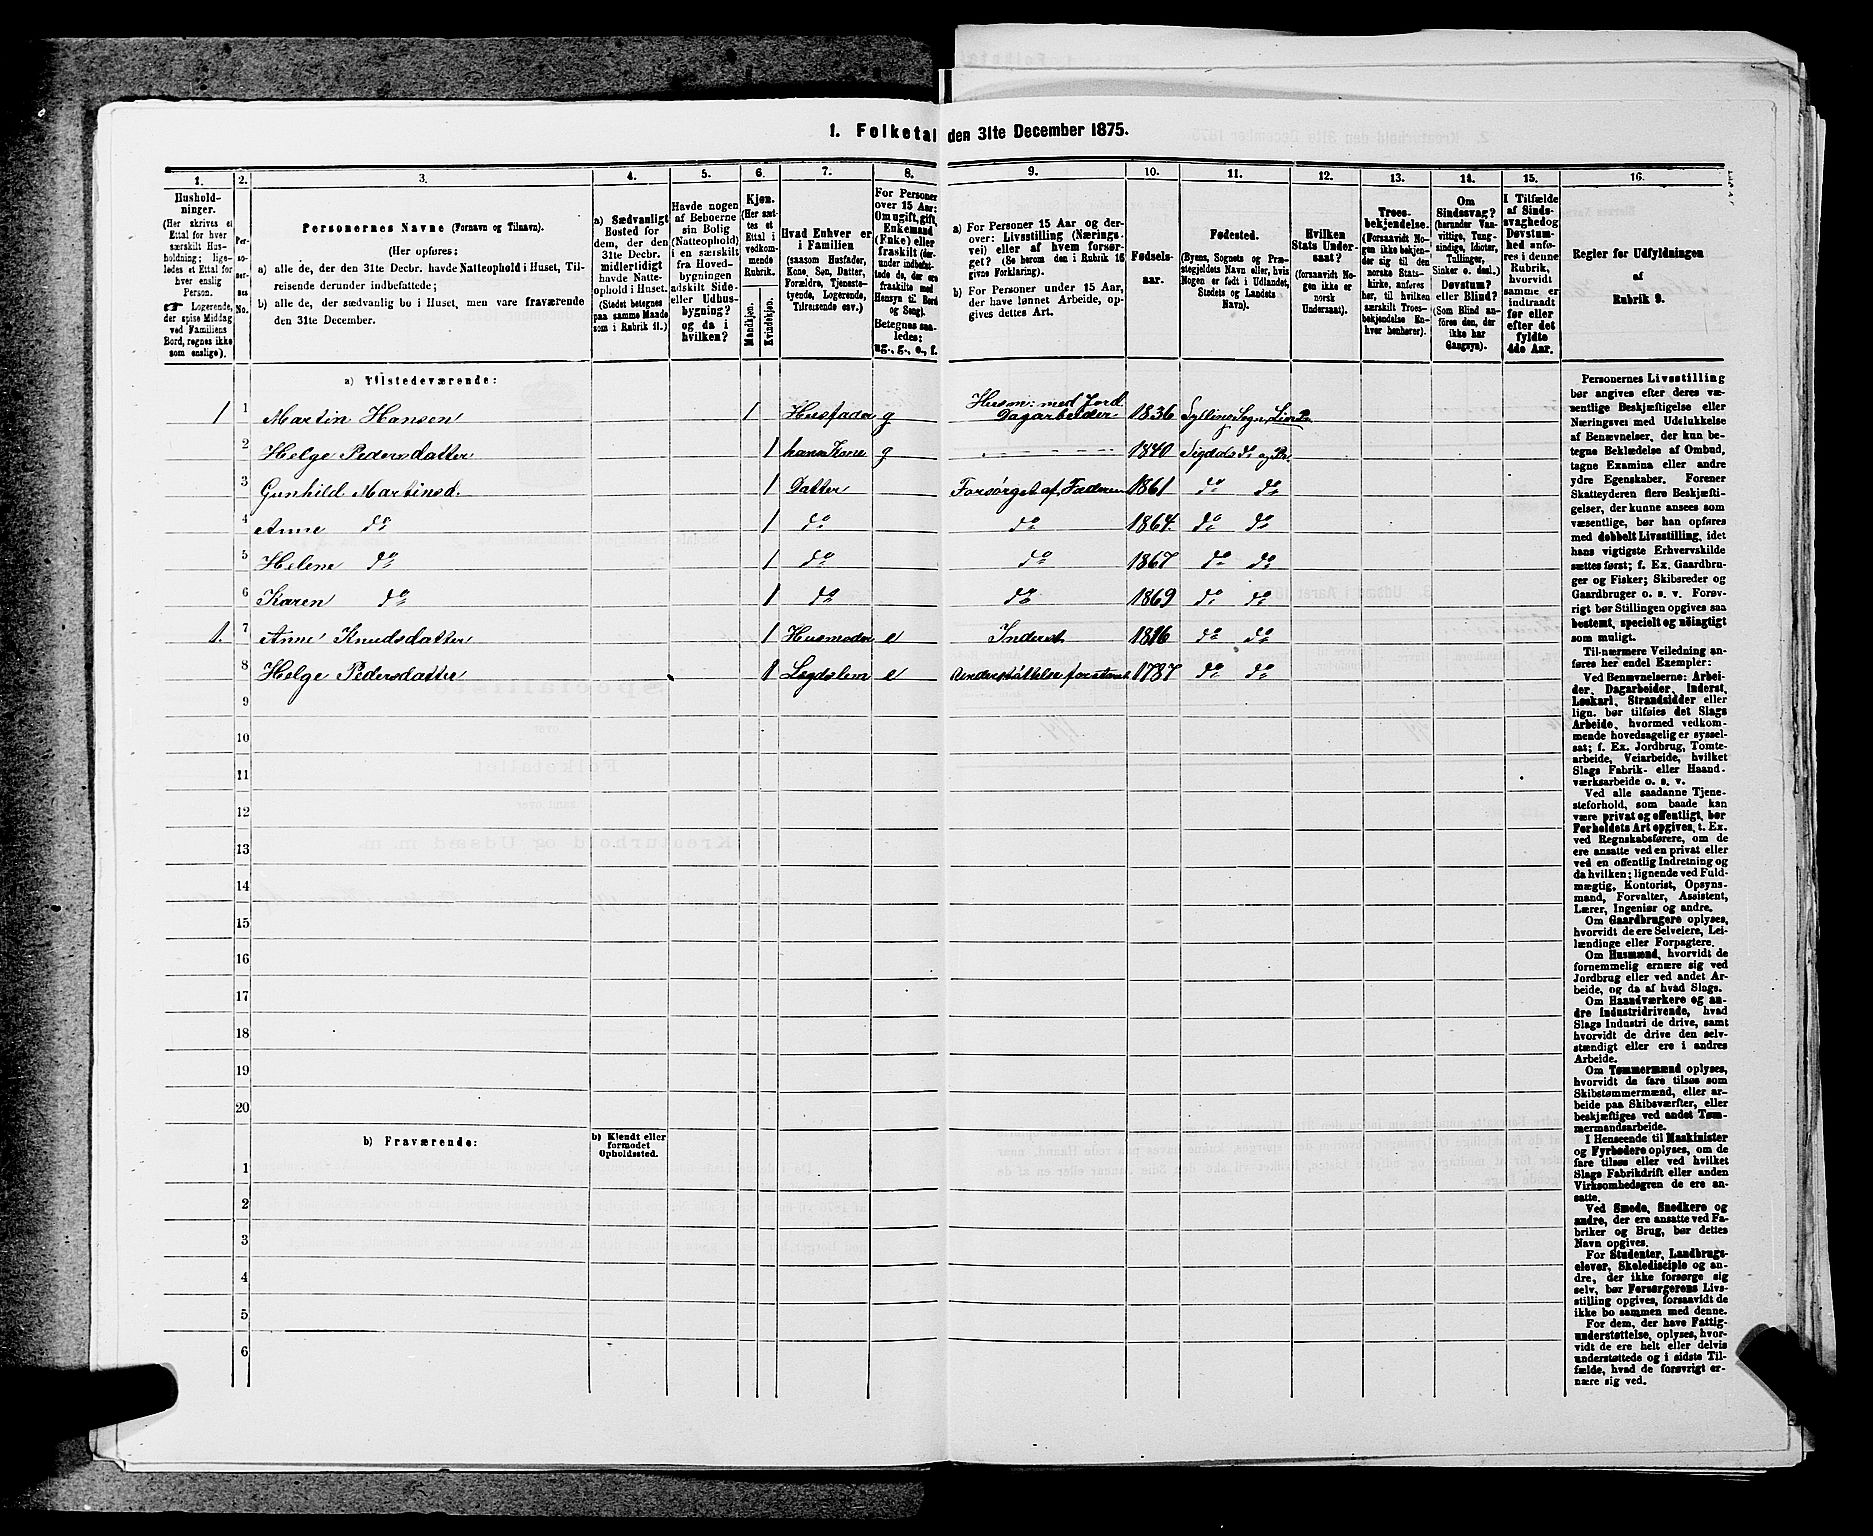 1. Folketal den 31te December 1875.
1.
Hushold-
ninger.
(Her skrives et
Ettal for hver
særskilt Hus-
holdning; lige-
ledes et Ettal for
hver enslig
Person.
Logerende,
der spise Middag
ved Familiens
Bord, regnes ikke
som enslige).
2.
Per-
so-
ner-
nes
No.
3.
Personernes Navne (Fornavn og Tilnavn).
(Her opføres:
a) alle de, der den 31te Decbr. havde Natteophold i Huset, Til-
reisende derunder indbefattede;
b) alle de, der sædvanlig bo i Huset, men vare fraværende
den 31te December.
4.
a) Sædvanligt
Bosted for
dem, der den
31te Decbr.
midlertidigt
havde Natte-
ophold i Huset.
(Stedet betegnes
paa samme Maade
som i Rubrik 11.)
5.
Havde nogen
af Beboerne
sin Bolig
(Natteophold)
i en særskilt
fra Hoved-
bygningen
adskilt Side-
eller Udhus-
bygning?
og da i
hvilken?
6.
Kjøn.
(Her sæt-
tes et
Ettal i
vedkom-
mende
Rubrik.
Mandkjøn.
Kvindekjøn.
7.
Hvad Enhver er
i Familien
(saasom Husfader,
Kone, Søn, Datter,
Forældre, Tjeneste-
tyende, Logerende,
Tilreisende osv.)
8.
For Personer
over 15 Aar:
Om ugift, gift,
Enkemand
(Enke) eller
fraskilt (der-
under indbefat-
tede de, der ere
fraskilte med
Hensyn til Bord
og Seng).
Betegnes saa-
ledes:
ug., g., e., f.
9.
a) For Personer 15 Aar og der-
over: Livsstilling (Nærings-
vei) eller af hvem forsør-
get? (Se herom den i Rubrik 16
givne Forklaring).
b) For Personer under 15 Aar,
der have lønnet Arbeide, op-
gives dettes Art.
10.
Fødsels-
aar.
11.
Fødested.
(Byens, Sognets og Præ-
stegjeldets Navn eller, hvis
Nogen er født i Udlandet,
Stedets og Landets
Navn).
12.
Hvilken
Stats Under-
saat?
(forsaavidt No-
gen ikke er
norsk
Undersaat).
13.
Troes-
bekjendelse.
(Forsaavidt No-
gen ikke bekjen-
der sig til den
norske Stats-
kirke, anføres
her, til hvilken
særskilt Troes-
bekjendelse En-
hver henhører).
14.
Om
Sindssvag?
(herunder Van-
vittige, Tung-
sindige, Idioter,
Tullinger,
Sinker o. desl.)
Døvstum?
eller Blind?
(Som Blind an-
føres den, der
ikke har
Gangsyn).
15.
I Tilfælde
af Sinds-
svaghed og
Døvstum-
hed anfø-
res i denne
Rubrik,
hvorvidt
samme er
indtraadt
før eller
efter det
fyldte
4de Aar.
16.
Regler for Udfyldningen
af
Rubrik 9.
a) Tilstedeværende:
1 1 Martin Hansen 1 Husfader g Husm: med Jord Dagarbeider 1836 Syllings Sogn, Liers P.
2 Helge Pedersdatter 1 hans Kone g 1840 Sigdals do og Pr.
3 Gunhild Martinsd. 1 Datter Forsørget af Faderen 1861 do do
4 Anne do 1 do do 1864. do do
5 Helene do 1 do do 1867 do do
6 Karen do 1 do do 1869 do do
1. 7 Anne Knudsdatter 1 Husmoder e Inderst 1816 do do
8 Helge Pedersdatter 1 Lægdslem e 1787 do do
9
10
11
12
13
14
15
16
17
18
19
20
b) Fraværende:
b) Kjendt eller
formodet
Opholdssted.
1
2
3
4
5
6
Personernes Livsstilling
bør angives efter deres væ-
sentlige Beskjæftigelse eller
Næringsvei med Udelukkelse
af Benævnelser, der kun be-
tegne Beklædelse af Ombud,
tagne Examina eller andre
ydre Egenskaber. Forener
Skatteyderen flere Beskjæfti-
gelser, der kunne ansees som
væsentlige, bør han opføres
med dobbelt Livsstilling, idet
hans vigtigste Erhvervskilde
sættes først; f. Ex. Gaardbru-
ger og Fisker; Skibsreder og
Gaardbruger o. s. v. Forøv-
rigt bør Stillingen opgives saa
bestemt, specielt og nøiagtigt
som muligt.
Til nærmere Veiledning an-
føres her endel Exempler:
Ved Benævnelserne: Arbei-
der, Dagarbeider, Inderst,
Løskarl, Strandsidder eller
lign. bør tilføies det Slags
Arbeide, hvormed vedkom-
mende hovedsagelig er syssel-
sat; f. Ex. Jordbrug, Tomte-
arbeide, Veiarbeide, hvilket
Slags Fabrik- eller Haand-
værksarbeide o. s. v.
Ved alle saadanne Tjene-
steforhold, som baade kan
være privat og offentligt, bør
Forholdets Art opgives, t. Ex.
ved Regnskabsførere, om de
ere ansatte ved en privat eller
ved en offentlig Indretning og
da hvilken; lignende ved Fuld-
mægtig, Kontorist, Opsyns-
mand, Forvalter, Assistent,
Lærer, Ingeniør og andre.
Om Gaardbrugere oplyses,
hvorvidt de ere Selveiere, Lei-
lændinge eller Forpagtere.
Om Husmænd, hvorvidt de
fornemmelig ernære sig ved
Jordbrug eller ved andet Ar-
beide, og da af hvad Slags.
Om Haandværkere og an-
dre Industridrivende, hvad
Slags Industri de drive, samt
hvorvidt de drive den selv-
stændigt eller ere i andres
Arbeide.
Om Tømmermænd oplyses,
hvorvidt de fare tilsøs som
Skibstømmermænd, eller ar-
beide paa Skibsværfter, eller
beskjæftiges ved andet Tøm-
mermandsarbeide.
I Henseende til Maskinister
og Fyrbødere oplyses, om de
fare tilsøs eller ved hvilket
Slags Fabrikdrift eller anden
Virksomhedsgren de ere an-
satte.
Ved Smede, Snedkere og
andre, der ere ansatte ved Fa-
briker og Brug, bør dettes
Navn opgives.
For Studenter, Landbrugs-
elever, Skoledisciple og an-
dre, der ikke forsørge sig
selv, bør Forsørgerens Livs-
stilling opgives, forsaavidt de
ikke bo sammen med denne.
For dem, der have Fattig-
understøttelse, oplyses, hvor-
vidt de ere helt eller delvis
understøttede og i sidste Til-
fælde, hvad de forøvrigt er-
nære sig ved.